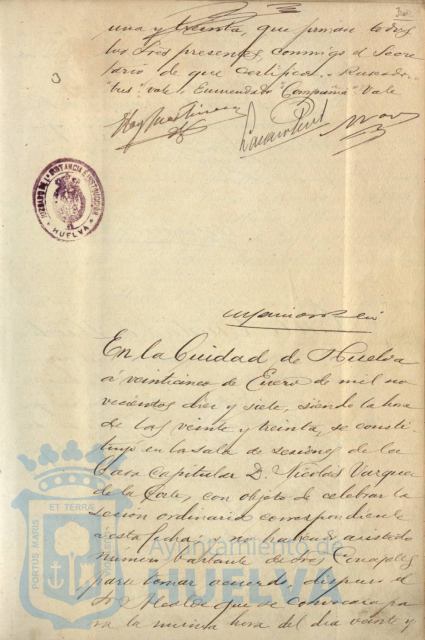 una y treinta, que firman todos
los Sres presentes, conmigo el Secre
tario de que certifico. Raspado
"tres" vale. Enmendado "Compañia" Vale
JUZGADO DE 1ª INSTANCIA E INSTRUCCION
HUELVA
En la Ciudad de Huelva
á veinticinco de Enero de mil no
vecientos diez y siete, siendo la hora
de las veinte y treinta, se consti
tuyó en la Sala de sesiones de la
Casa Capitular D. Nicolás Vazquez
de la Corte, con objeto de celebrar la
sesión ordinaria correspondiente
á esta fecha, y no habiendo asistido
numero bastante de Sres Concejales
para tomar acuerdo, dispuso el
Sr Alcalde que se convocara pa
ra la misma hora del dia veinte y
PORTUS MARIS ET TERRAE
Ayuntamiento de
HUELVA